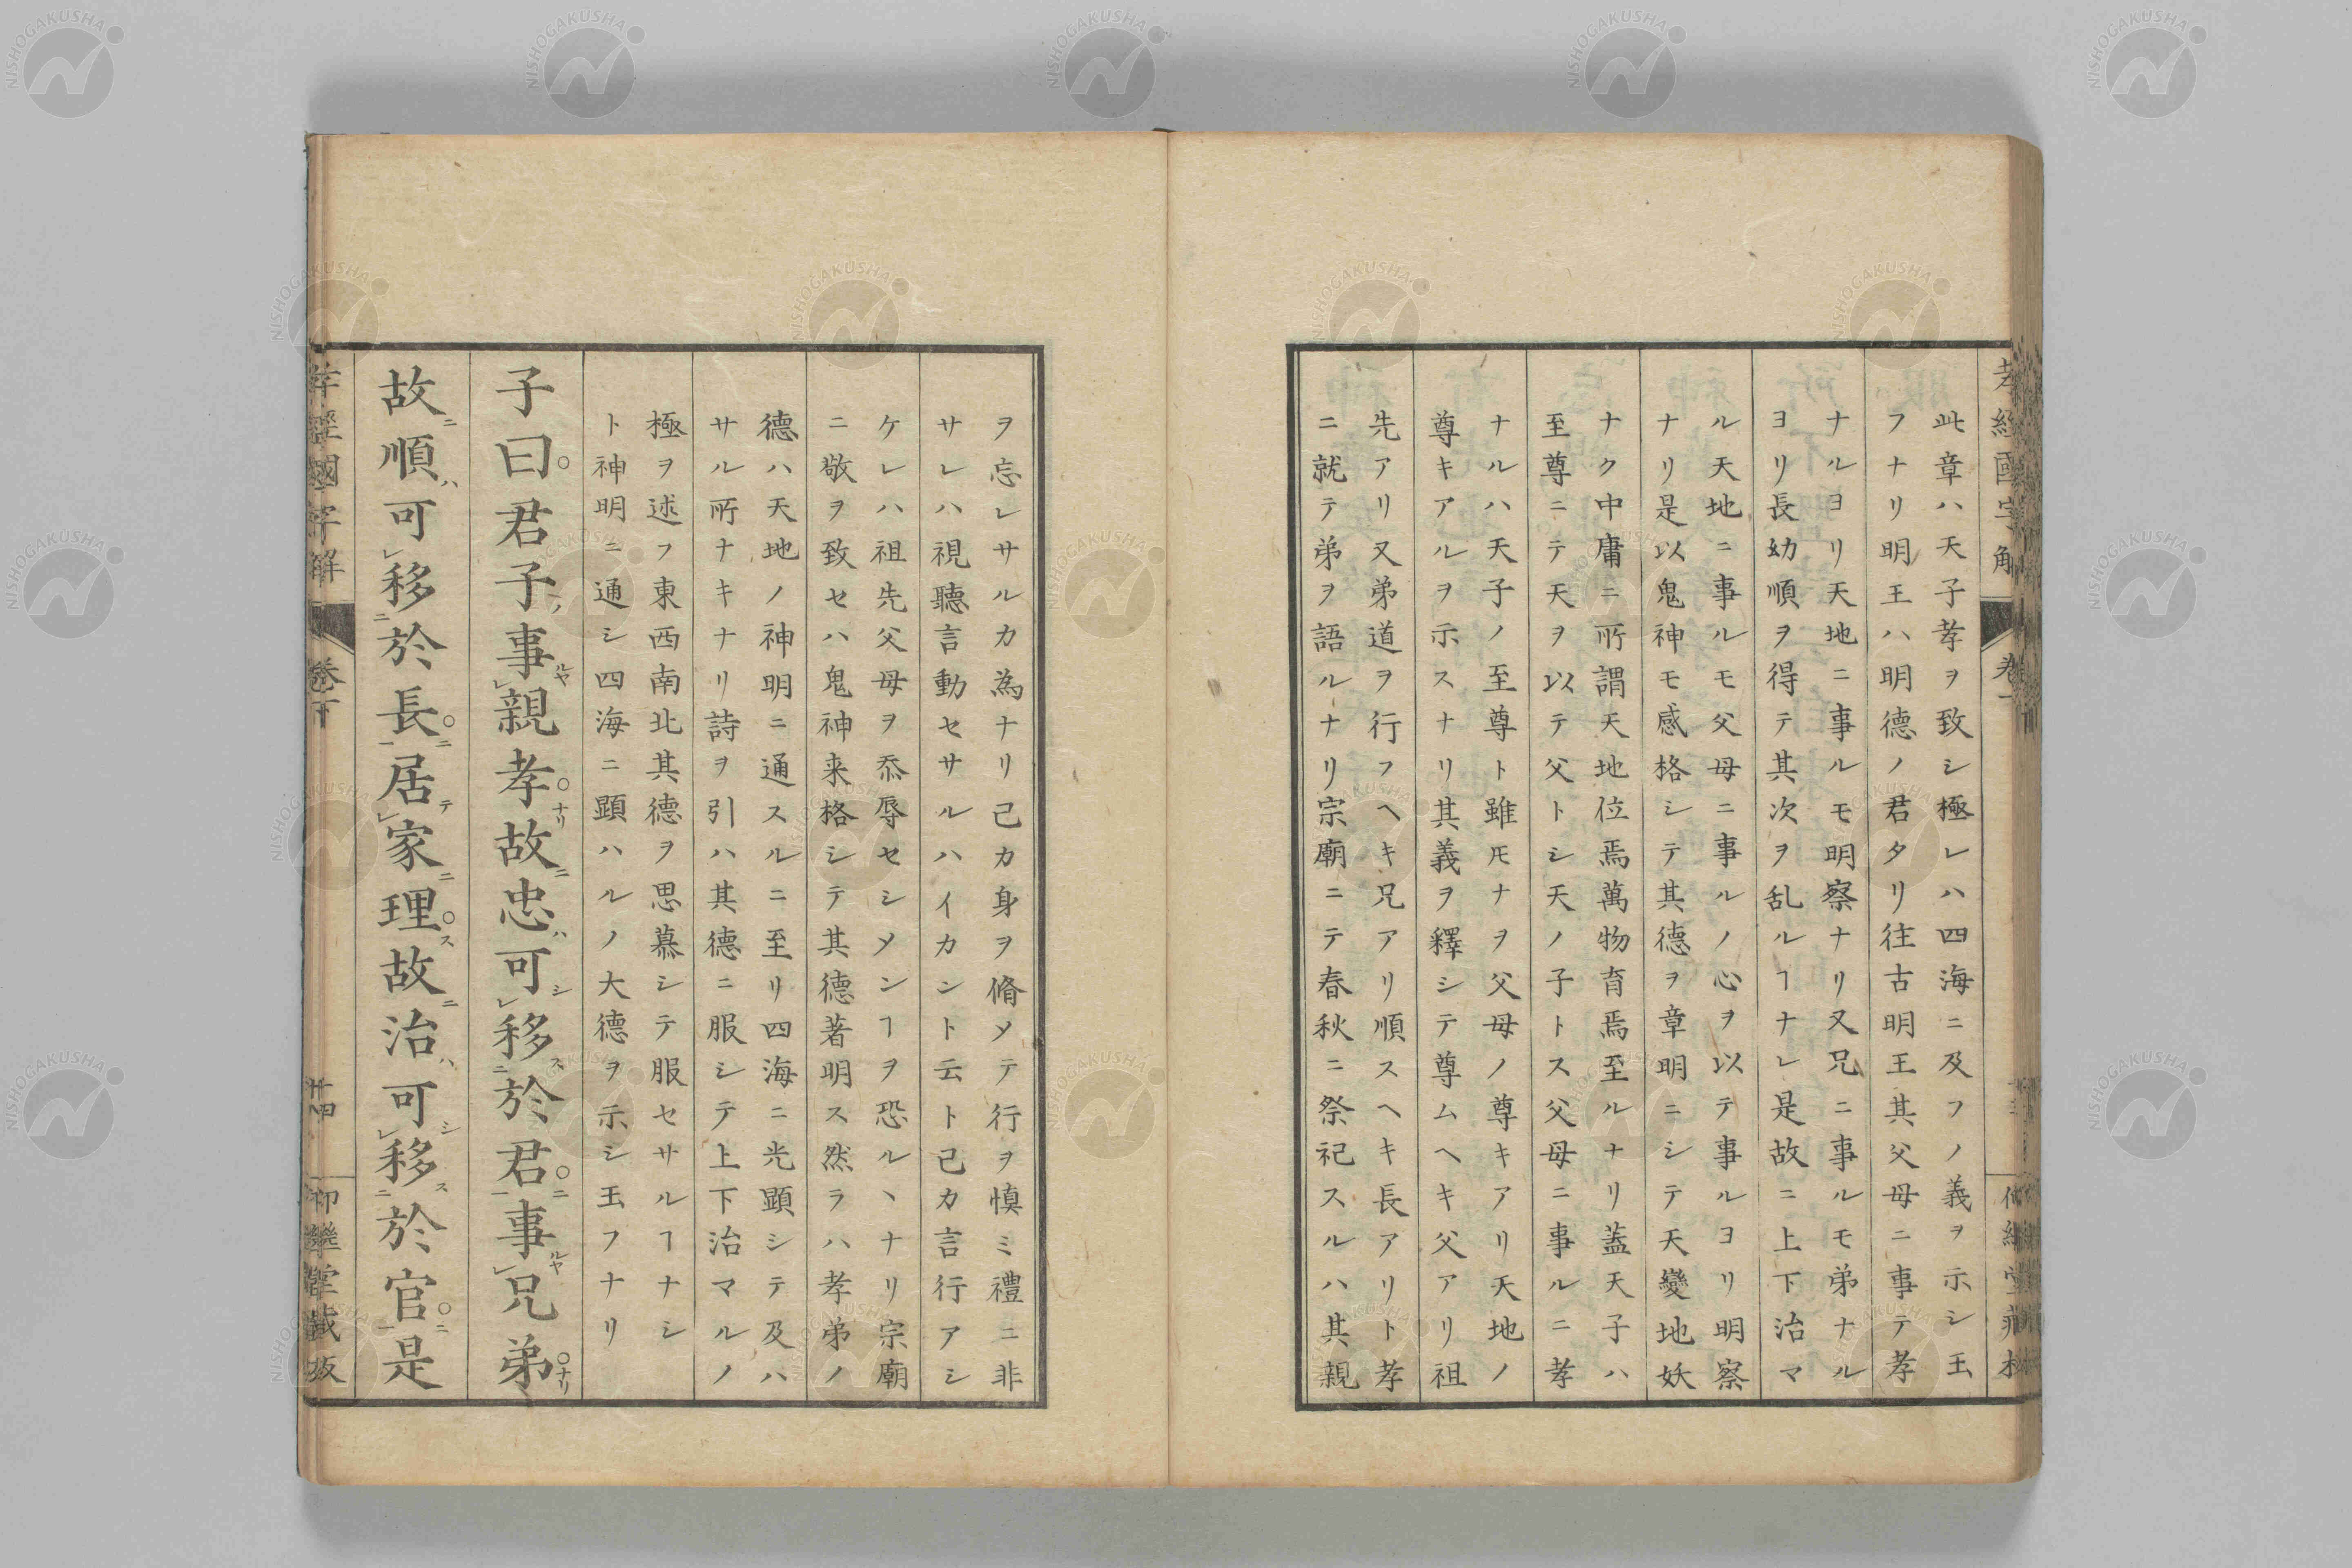 此章ハ天子孝ヲ致シ極レハ四海ニ及フノ義ヲ示シ玉
フナリ明王ハ明德ノ君タリ往古明王其父母ニ事テ孝
ナルヨリ天地ニ事ルモ明察ナリ又兄ニ事ルモ弟ナル
ヨリ長幼順ヲ得テ其次ヲ乱ルヿナレ是故ニ上下治マ
ル天地ニ事ルモ父母ニ事ルノ心ヲ以テ事ルヨリ明察
ナリ是以鬼神モ感格シテ其德ヲ章明ニシテ天變地妖
ナク中庸ニ所謂天地位焉萬物育焉至ルナリ蓋天子ハ
至尊ニテ天ヲ以テ父トシ天ノ子トス父母ニ事ルニ孝
ナルハ天子ノ至尊ト雖𪜈ナヲ父母ノ尊キアリ天地ノ
尊キアルヲ示スナリ其義ヲ釋シテ尊ムヘキ父アリ祖
先アリ又弟道ヲ行フヘキ兄アリ順スヘキ長アリト孝
ニ就テ弟ヲ語ルナリ宗廟ニテ春秋ニ祭祀スルハ其親
ヲ忘レサルカ為ナリ己カ身ヲ脩メテ行ヲ慎ミ禮ニ非
サレハ視聽言動セサルハイカント云ト己カ言行アシ
ケレハ祖先父母ヲ忝辱セシメンヿヲ恐ルヽナリ宗廟
ニ敬ヲ致セハ鬼神来格シテ其德著明ス然ラハ孝弟ノ
德ハ天地ノ神明ニ通スルニ至リ四海ニ光顕シテ及ハ
サル所ナキナリ詩ヲ引ハ其德ニ服シテ上下治マルノ
極ヲ述フ東西南北其德ヲ思慕シテ服セサルヿナシ
ト神明ニ通シ四海ニ顕ハルノ大德ヲ示シ玉フナリ
子曰君子ノ事ルヤ親孝ナリ故ニ忠ハ可シレ移スニ於君ニ一事ルヤ兄弟ナリ
故ニ順ハ可レ移ニ於長ニ一居テレ家ニ理ス故ニ治ハ可シレ移スニ於官ニ一是
孝經國字解
卷下
廿四
仰樂堂藏板